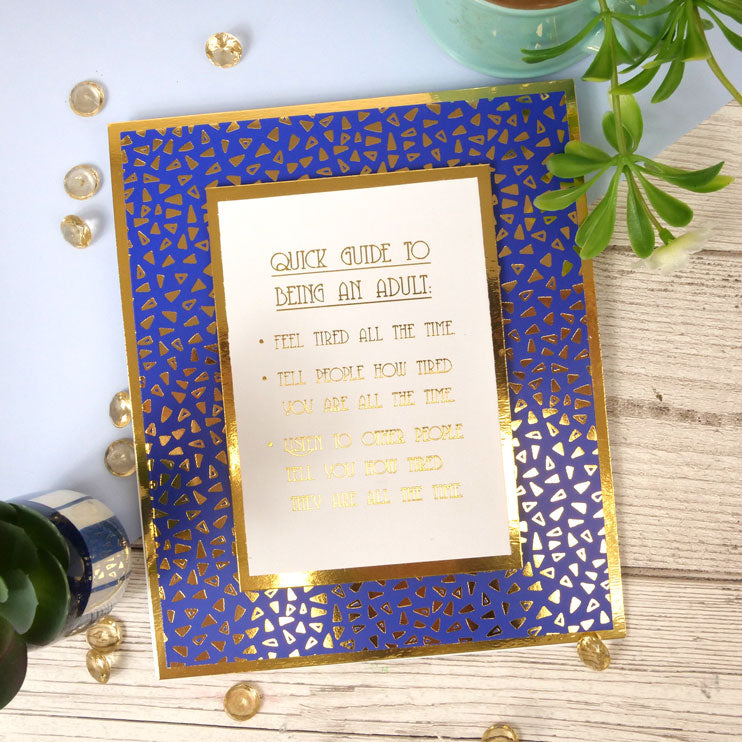 QUICK GUIDE TO
BEING AN ADULT:
• FEEL TIRED ALL THE TIME
• TELL PEOPLE HOW TIRED
YOU ARE ALL THE TIME
• LISTEN TO OTHER PEOPLE
TELL YOU HOW TIRED
THEY ARE ALL THE TIME